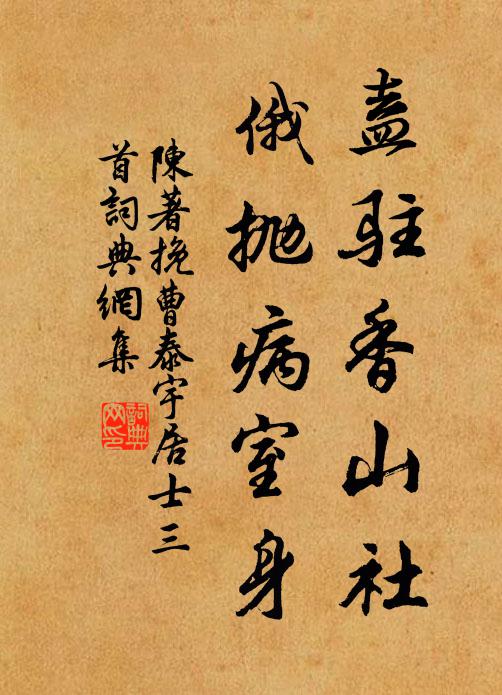 盍駐香山社
俄抛病室身
陳著挽曹泰宇居士三
首詞典網集
詞典
網印